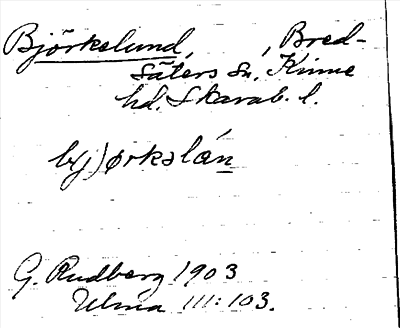 Björkelund, , Bred-
säters sn, Kinne
hd. Skarab. l.
bj) ørkəlán
G. Rudberg 1903
Ulma III:103.